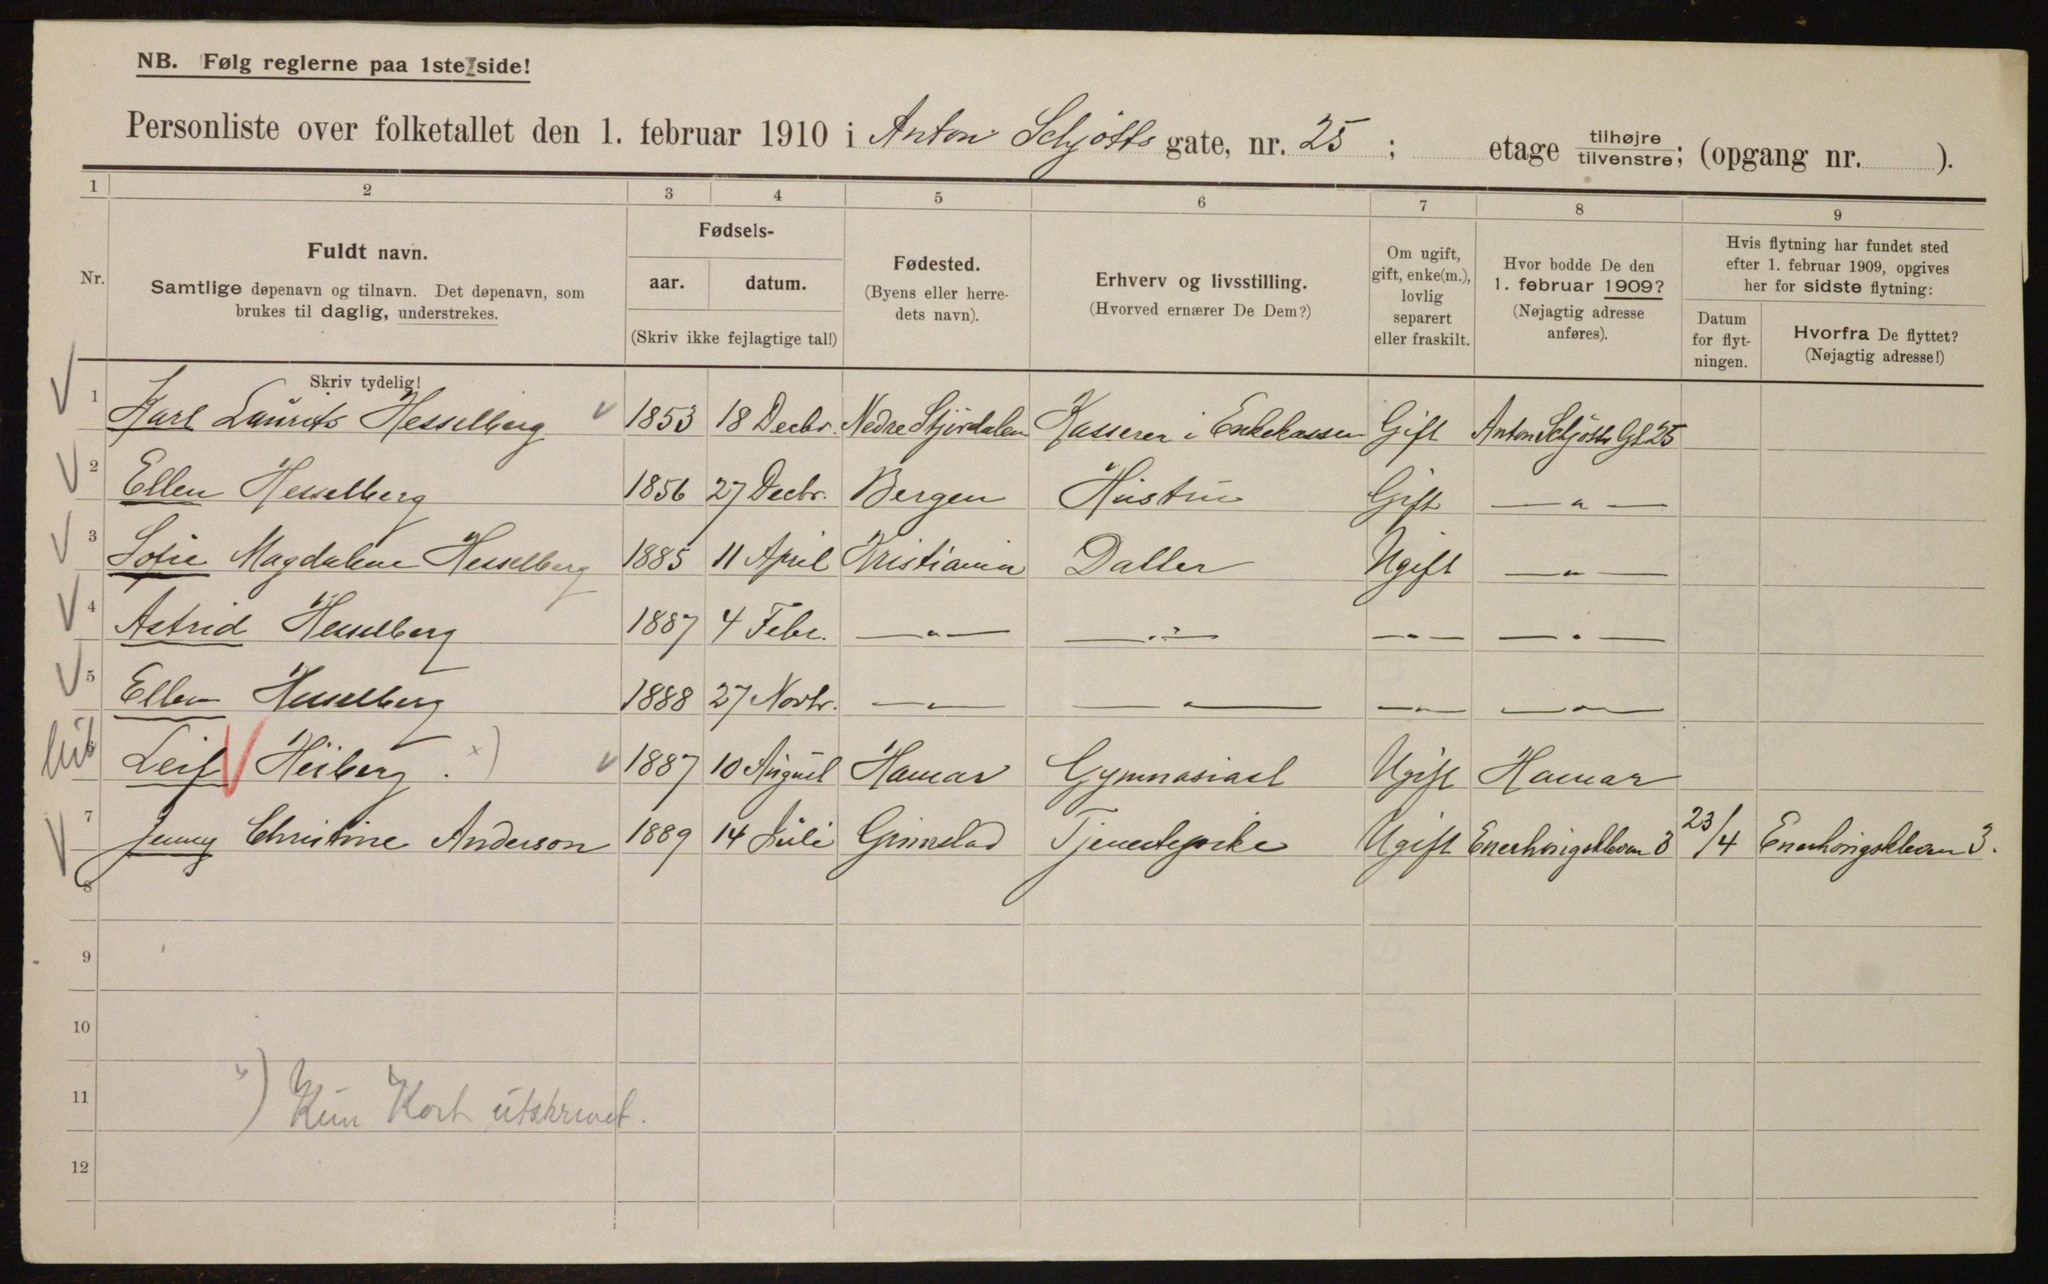 NB. Følg reglerne paa 1ste side!
Personliste over folketallet den 1. februar 1910 i Anton Schjøtts gate, nr. 25 ; etage tilhøjre/tilvenstre; (opgang nr. ).
1 2 3 4 5 6 7 8 9
Nr.
Fuldt navn.
Samtlige døpenavn og tilnavn. Det døpenavn, som
brukes til daglig, understrekes.
Skriv tydelig!
Fødsels-
aar. datum.
(Skriv ikke fejlagtige tal!)
Fødested.
(Byens eller herre-
dets navn).
Erhverv og livsstilling.
(Hvorved ernærer De Dem?)
Om ugift,
gift, enke(m.),
lovlig
separert
eller fraskilt.
Hvor bodde De den
1. februar 1909?
(Nøjagtig adresse
anføres).
Hvis flytning har fundet sted
efter 1. februar 1909, opgives
her for sidste flytning:
Datum
for flyt-
ningen.
Hvorfra De flyttet?
(Nøjagtig adresse!)
1 Karl Laurits Hesselberg 1853 18 Decbr. Nedre Stjørdalen Kasserer i Enkekassen Gift Anton Schjøtts Gt 25
2 Ellen Hesselberg 1856 27 Decbr. Bergen Hustru Gift — " —
3 Sofie Magdalene Hesselberg 1885 11 April Kristiania Datter Ugift — " —
4 Astrid Hesselberg 1887 4 Febr. — " — — " — — " — — " —
5 Ellen Hesselberg 1888 27 Novbr. — " — — " — — " — — " —
6 Leif Heiberg x) 1887 10 August Hamar Gymnasiast Ugift Hamar
7 Jenny Christine Anderson 1889 14 Juli Grimstad Tjenestepike Ugift Enerhaugskleven 3 23/4 Enerhaugskleven 3.
8
9
10
11 x) Kun Kort utskrevet.
12